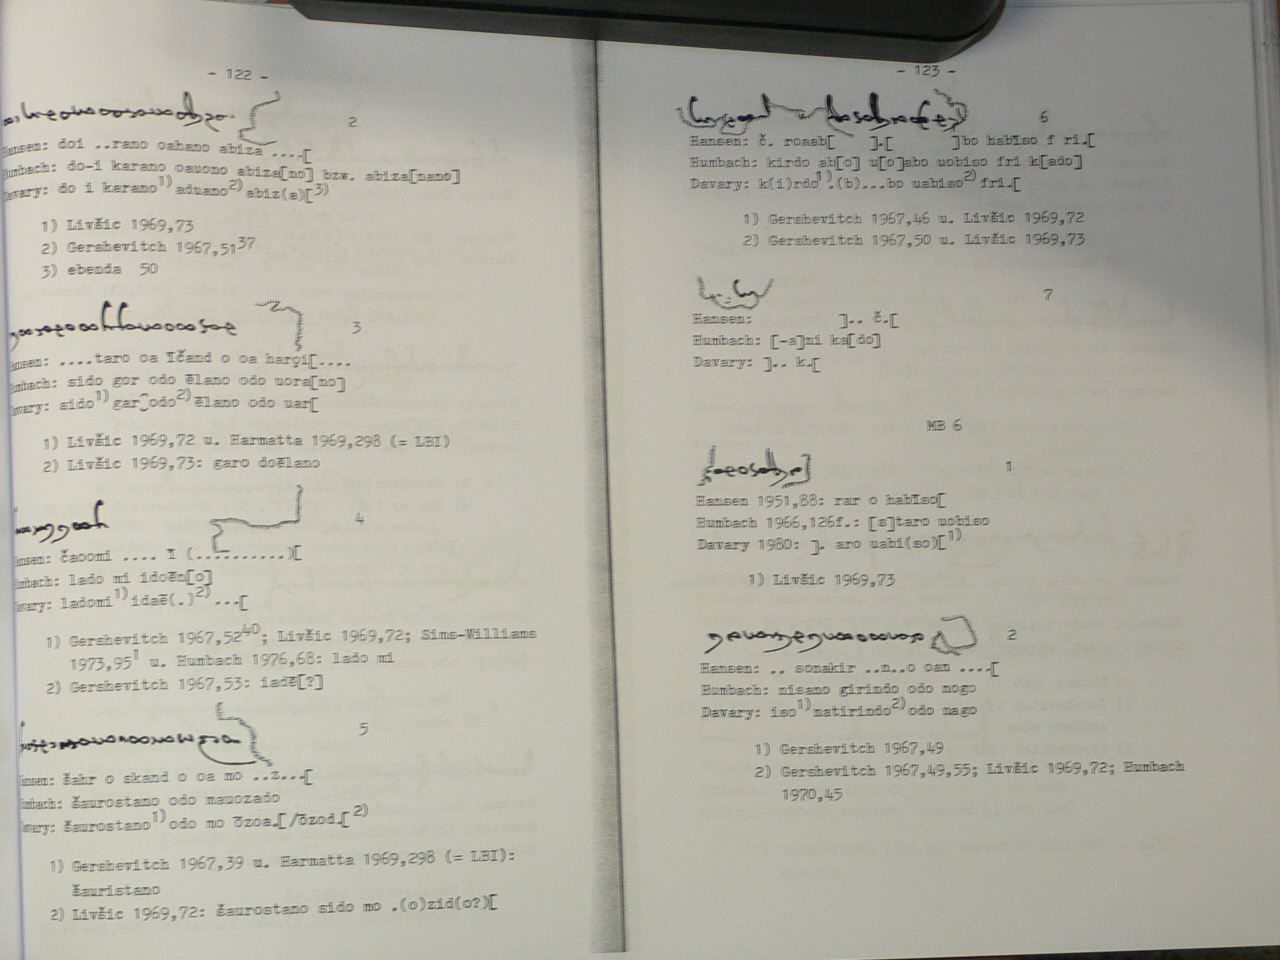 - 122 -
2
Hansen: doi ..rano oahano abiza ....[
Humbach: do-i karano oauono abiza[no] bzw. abiza[nano]
Davary: do i karano1) aduano2) abiz(a)[3)
1) Livšic 1969,73
2) Gershevitch 1967,5137
3) ebenda 50
3
Hansen: ....taro oa īčand o oa harçi[....
Humbach: sido gor odo ēlano odo uora[no]
Davary: sido1) gar‿odo2) ēlano odo uar[
1) Livšic 1969,72 u. Harmatta 1969,298 (= LBI)
2) Livšic 1969,73: garo doēlano
4
Hansen: čaoomi .... ī (..........)[
Humbach: lado mi idoēn[o]
Davary: ladomi1) idaē(.)2) ...[
1) Gershevitch 1967,5240; Livšic 1969,72; Sims-Williams
1973,951 u. Humbach 1976,68: lado mi
2) Gershevitch 1967,53: iadē[?]
5
Hansen: šahr o skand o oa mo ..z...[
Humbach: šaurostano odo mauozado
Davary: šaurostano1) odo mo ōzoa.[/ōzod.[2)
1) Gershevitch 1967,39 u. Harmatta 1969,298 (= LBI):
šauristano
2) Livšic 1969,72: šaurostano sido mo .(o)zid(o?)[
- 123 -
6
Hansen: č. roaab[ ].[ ]bo habīso f ri.[
Humbach: kirdo ab[o] u[o]abo uobiso fri k[ado]
Davary: k(i)rdo1).(b)...bo uabiso2) fri.[
1) Gershevitch 1967,46 u. Livšic 1969,72
2) Gershevitch 1967,50 u. Livšic 1969,73
7
Hansen: ].. č.[
Humbach: [-a]ni ka[do]
Davary: ].. k.[
MB 6
1
Hansen 1951,88: rar o habīso[
Humbach 1966,126f.: [s]taro uobiso
Davary 1980: ]. aro uabi(so)[1)
1) Livšic 1969,73
2
Hansen: .. sonakir ..n..o oan ....[
Humbach: nisano girindo odo nogo
Davary: iso1) natirindo2) odo nago
1) Gershevitch 1967,49
2) Gershevitch 1967,49,55; Livšic 1969,72; Humbach
1970,45